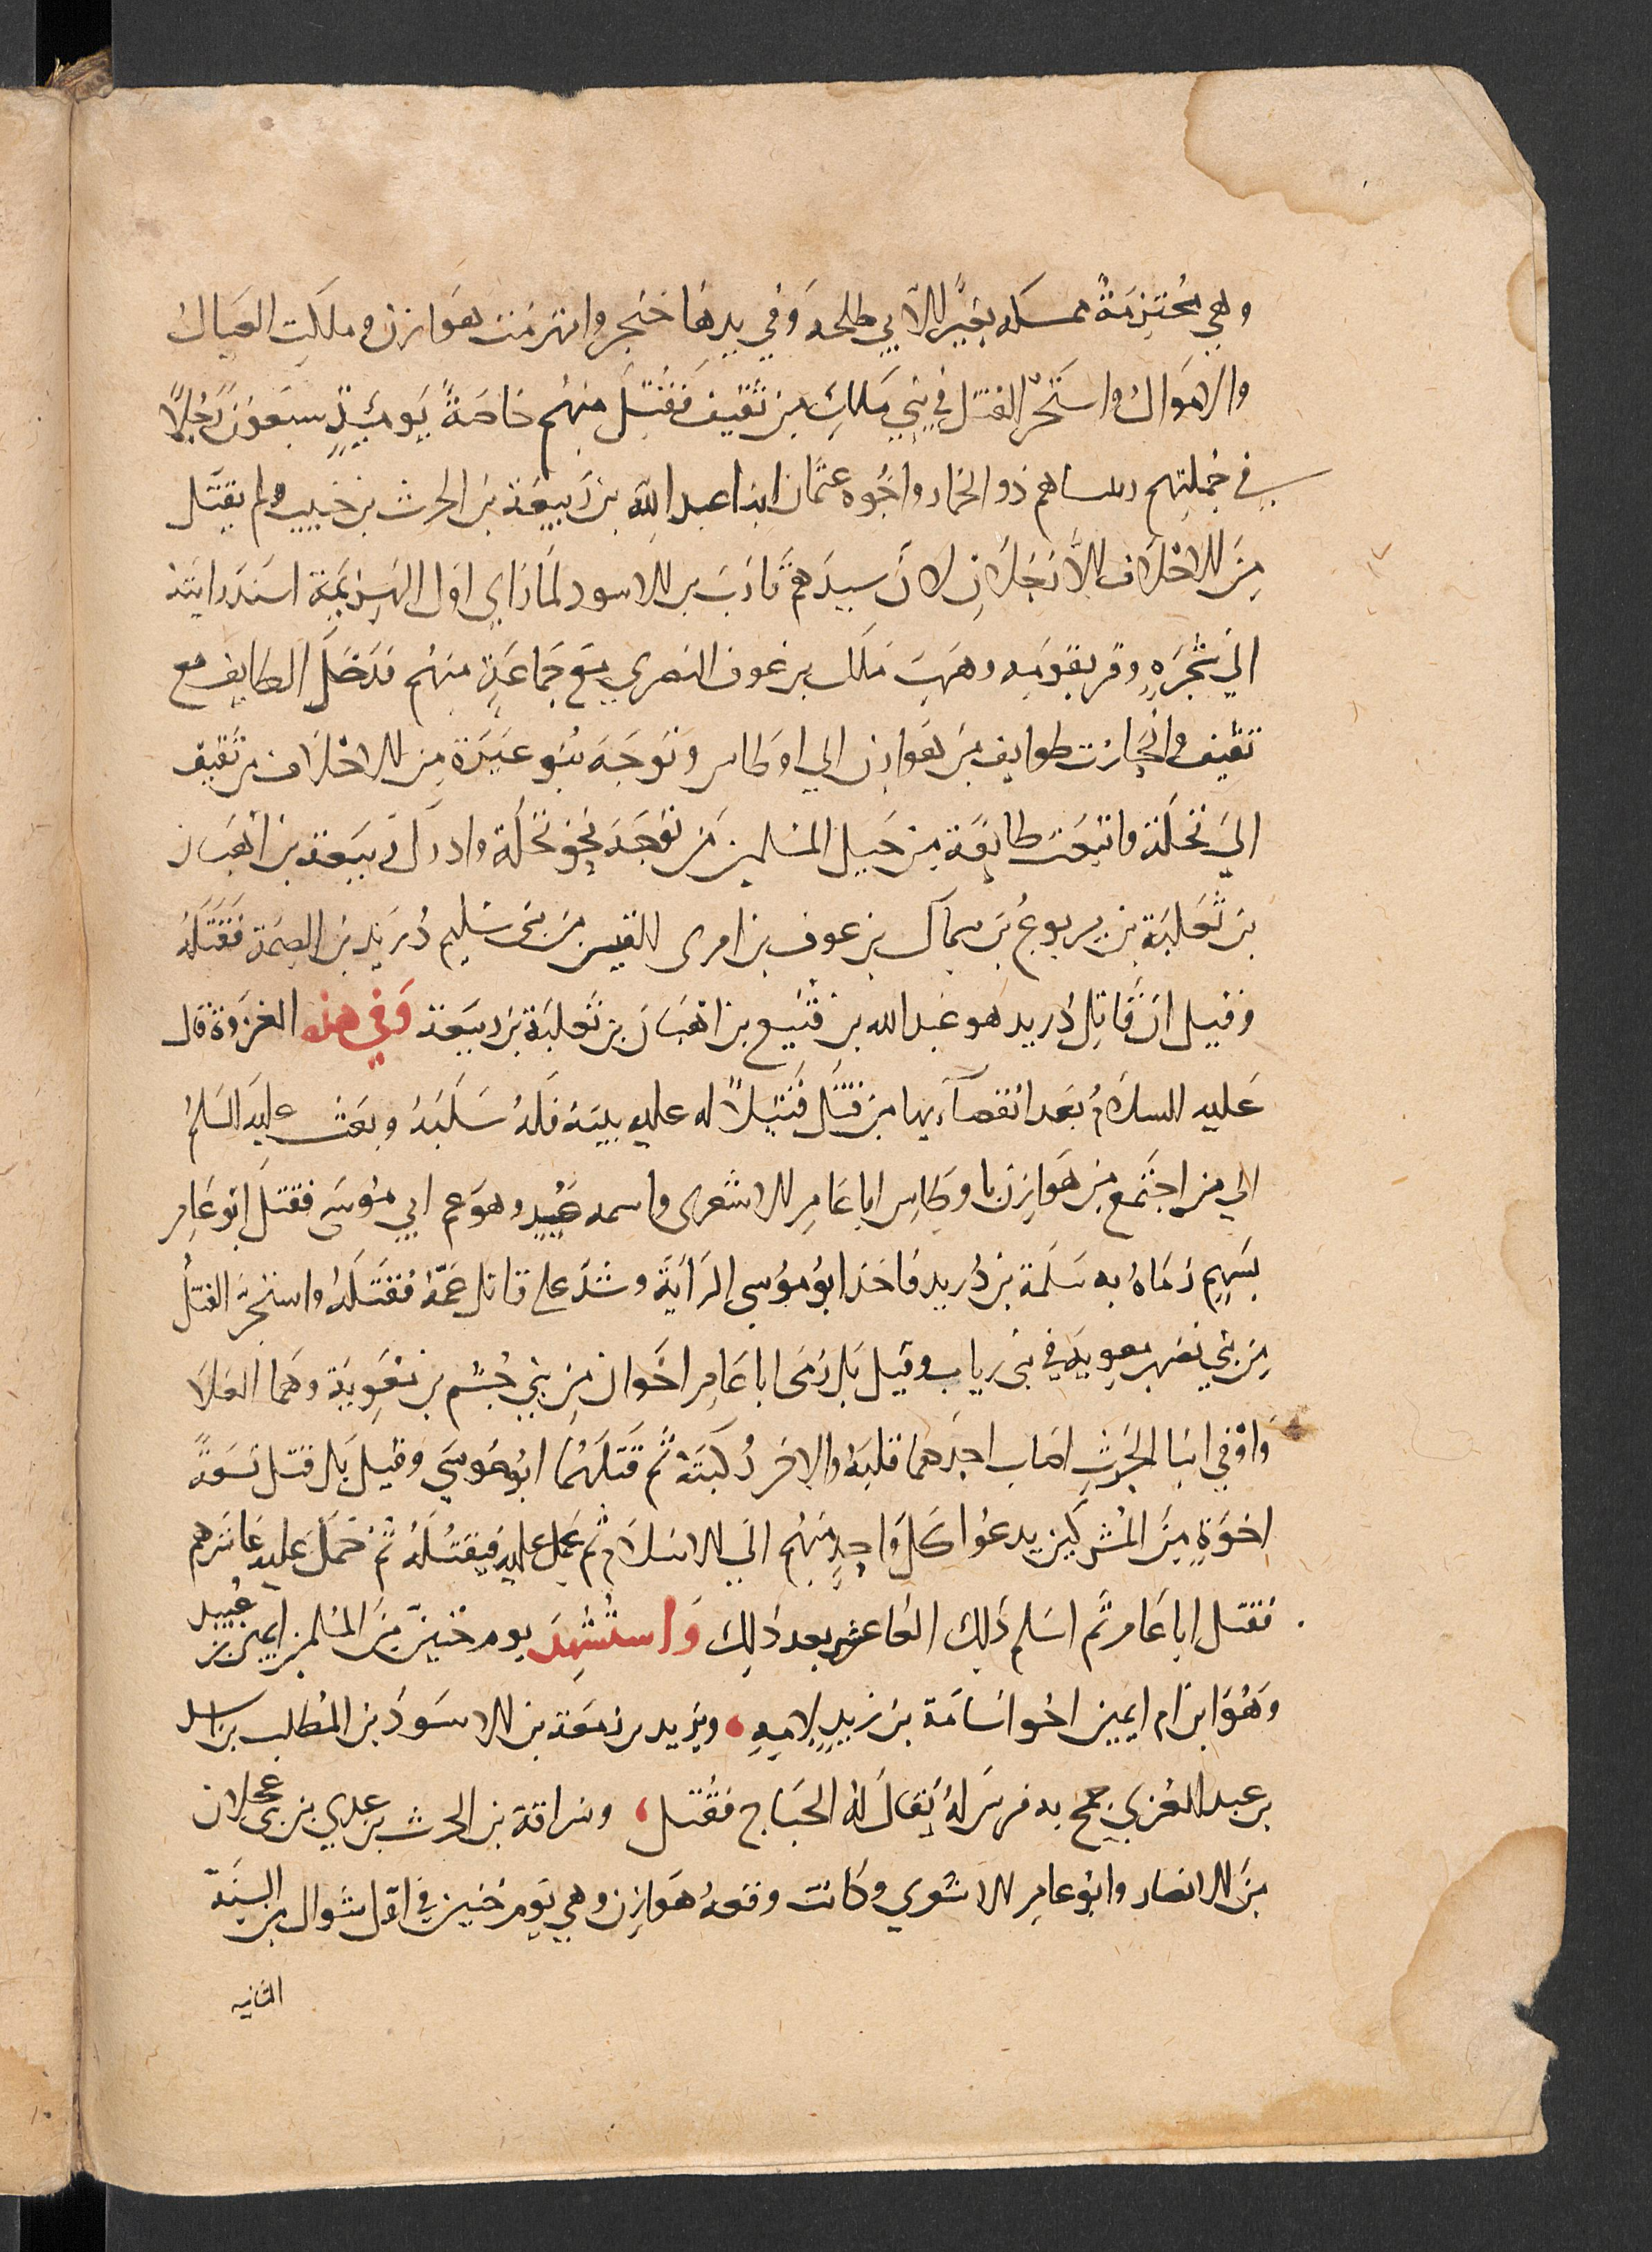 وهي مُحْتَزِمَةٌ ممسكه بَعِيرًا لاَبي طلحه وَفي يدِهَا خنجر وانهزمَت هَوازن و ملَكِت العيَالُ
والاَموَالُ واستَحَرّ القتل في بَني مَالِكٍ مِن ثَقيفَ فَقُتِلَ منهُم خاصَةً يَومَئِيذٍ سبعَونَ رَجُلاً
في جُملتِهم رئيساهم ذو الخمار واخُوه عثمَان ابنا عبد اللّه بن رَبيعَة بن الحرث بن حبيب ولم يقتَل
مِنَ الاحْلَاف اِلاَّ رَجُلَانِ لاَنَّ سيدَهمُ قارَبَ بن الاسود لَمَا رَايَ اوَل الهَزِيْمَة اسنَدَ رايتَه
اليَ شَجَرَهٍ وفر بقومِه وهَرَبَ مَالك بن عوف النصري مَع جَماعَةٍ منهُم فدَخَلَ الطايف مع
ثقيف وانحَازَت طوايف مِنَ هَوازن الي اوطاس وَتوَجَهَ بَنُو عَنَزَة مِن الاحْلَاف من ثَقِيف
اليَ نخلَة واتبعَت طايفَة مِن خَيل المسْلِمين مَن تَوَجَهَ نَحوَ نَخلَة وادرَكَ رَبيعَة بن اهْبَان
بن ثَعْلَبَة بن يربوعُ بن سِمَاك بن عوف بن امرى القيس من بنى سُليم دُرَيْد بن الصِمَة فَقَتَلهُ
وَقيل ان قَاتِلَ دُريد هو عَبد الله بن قُنَيع بن اهْبَان بن ثَعلَبَة بن رَبيعَة وَفي هذه الغزوَة قال
عَليه السلاَمُ بَعد انقضآءيها مَن قتَلَ قَتيْلاً له عليه بينَة فلَهُ سَلَبَهُ وبَعَثَ عليَه السَلمُ
الي مَن اجتَمعَ مِن هَوازِن باوطَاس ابا عَامِر الاشعرى واسمه عُبيدٍ وهو عم ابي مُوسَى فقتلَ ابوعَامِر
بسَهمٍ رَمَاهُ به سَلَمة بن دُريد فاخذ ابو مُوسي الرَايَة وشَدَّ على قاتل عَمّه فقَتلَهُ واستحَرَّ القتلُ
مِن بَني نصر بن معوِيَه في بَنى رياب وقيل بَل رَمَى ابا عَامِر اخَوان مِن بَني جُشَم بن مُعَوِيَة وهما العَلاَ
وَاوْفي ابنَا الحرثِ اصَاب احدهما قلبَه والاخر رُكبَتَه ثُم قَتَلَهُما ابُو مُوسَى وَقيل بَل قتل تسعَةً
اخوَةٍ مِنَ المُشركين يدعُوا كَل واحِدٍ مِنهُم اليَ الاسلاَم ثُم يحمل عليه فيَقتُلَهُ ثُمَ حَمَل عَليه عَاشرهم
فقتل ابا عَامر ثُم اسَلم ذلِك العَاشر بعد ذلِك وَاستُشهِدَ يومر حُنَين مِنَ المُسلمين ايمَن بن عُبَيد
وَهُوَ ابن ام ايمَن اخوا اُسَامة بن زيدٍ لاِمِه، ويزيد بن زمعَة بن الاسوَد بن المُطلب بن اسد
بن عبد العُزى جمح به فرسَ لهُ يُقالَ لهُ الجنَاح فقُتل، وسُراقة بن الحرث بن عدي بن بني عجلان
مِنَ الانصار وابُو عامِر الاشوي وكَانَت وقعهُ هَوَازِن وهي يَوم حنين في اوّل شوال من السِنَة
الثانيه